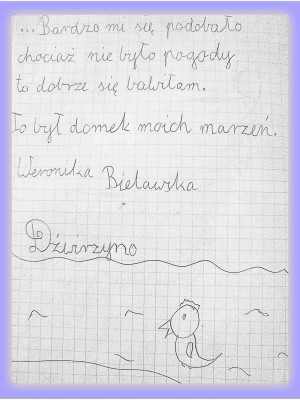 ...Bardzo mi się podobało
chociaż nie było pogody
to dobrze się bawiłam.
To był domek moich marzeń.
Weronika Bielawska
Dźwirzyno